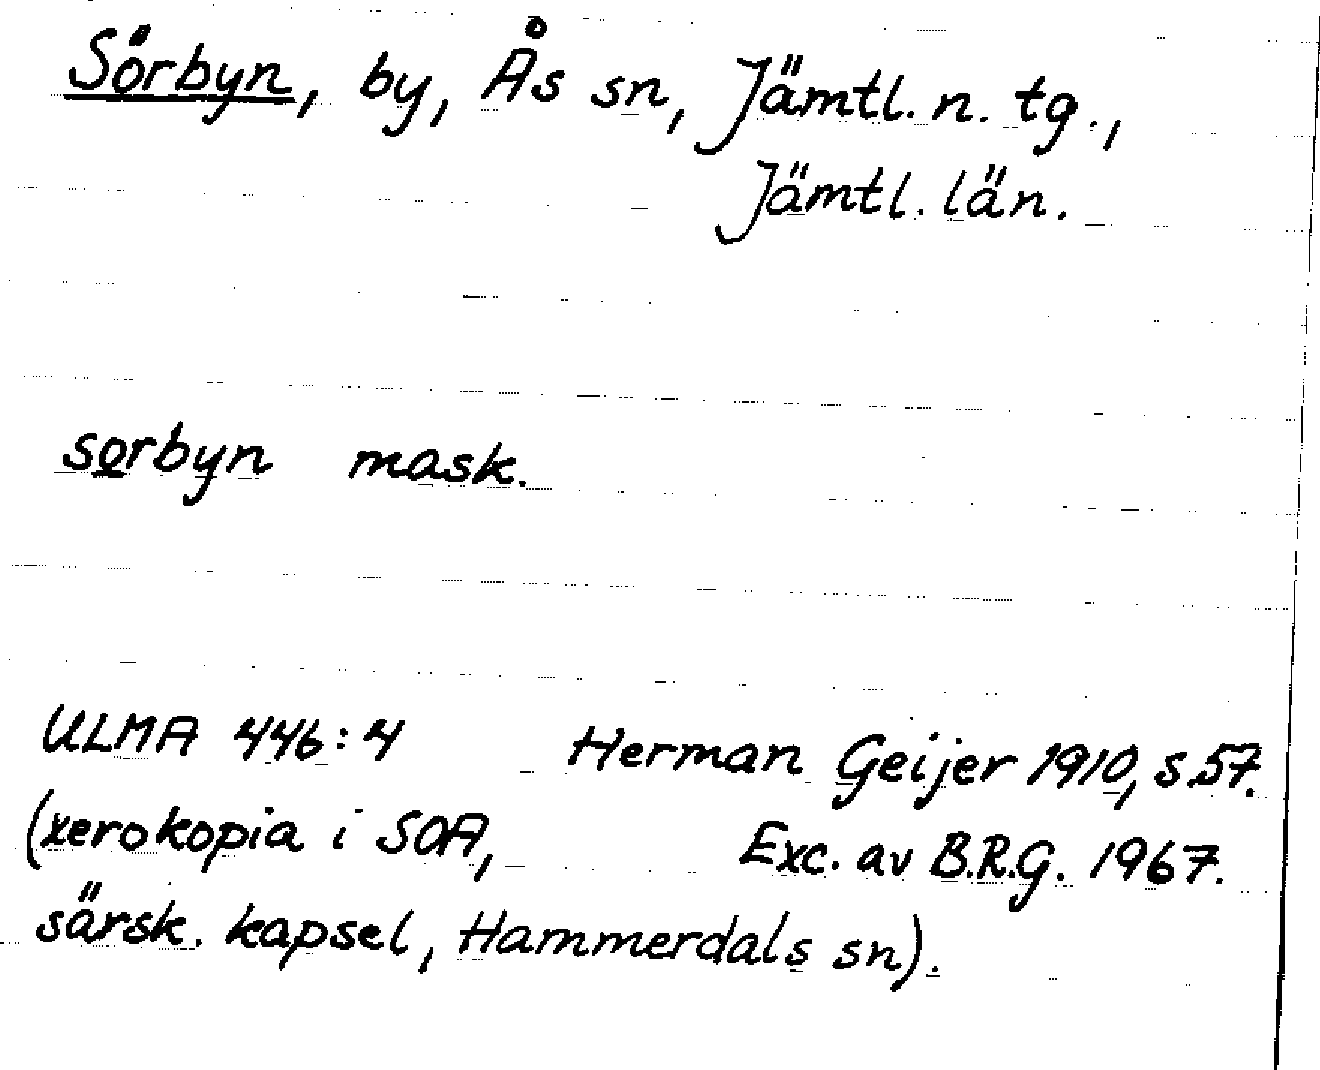 Sörbyn, by, Ås sn, Jämtl. n. tg.,
Jämtl. län.
sǫrbyn mask.
ULMA 446:4 Herman Geijer 1910, s.57.
(xerokopia i SOA, Exc. av B.R.G. 1967.
särsk. kapsel, Hammerdals sn).